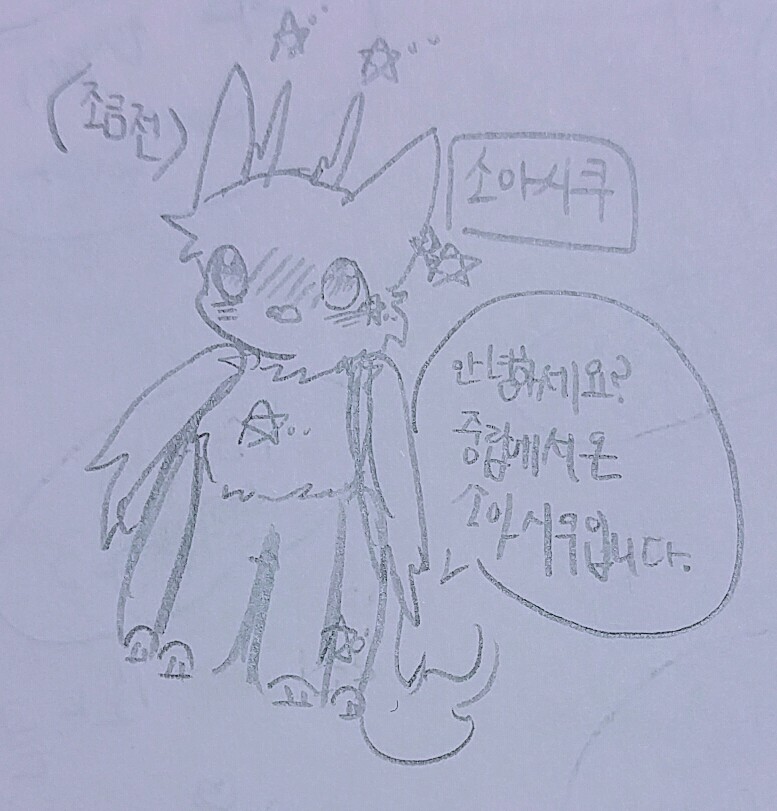 (조금전)
소아시쿠
안녕하세요?
중립에서온
소아시쿠입니다.